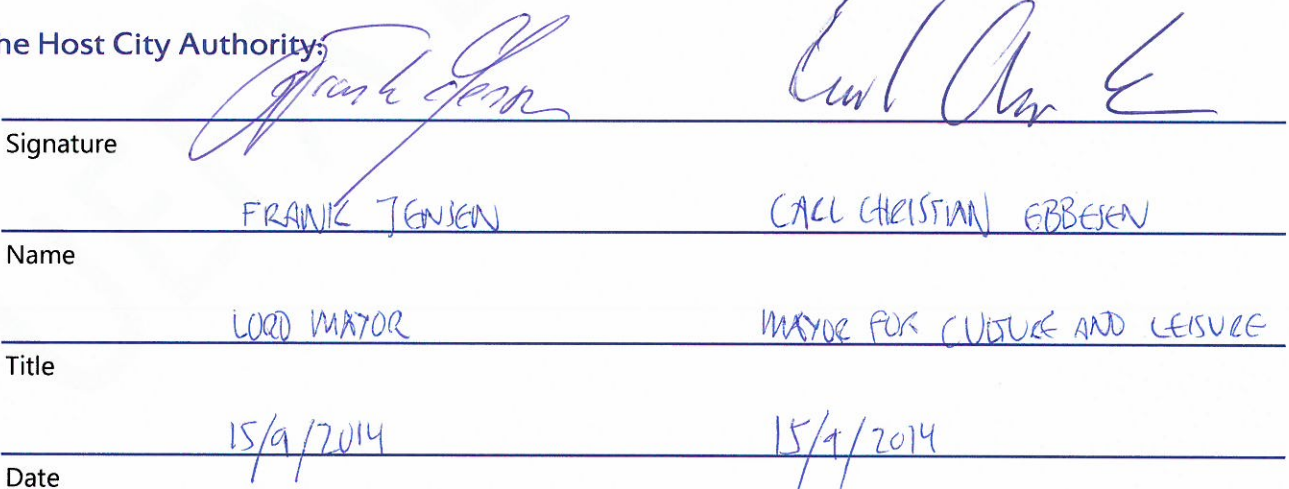 he Host City Authority:
Frank Jensen
Signature
FRANK JENSEN CARL CHRISTIAN EBBESEN
Name
LORD MAYOR MAYOR FOR CULTURE AND LEISURE
Title
15/9/2014 15/9/2014
Date